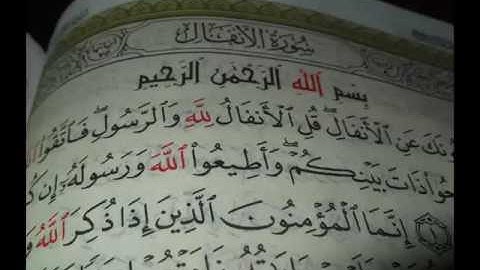 سُورَةُ الْأَنْفَالِ
بِسْمِ ٱللَّهِ ٱلرَّحْمَٰنِ ٱلرَّحِيمِ
ـُٔونَكَ عَنِ ٱلْأَنفَالِ ۖ قُلِ ٱلْأَنفَالُ لِلَّهِ وَٱلرَّسُولِ ۖ فَٱتَّقُوا۟
ـحُوا۟ ذَاتَ بَيْنِكُمْ ۖ وَأَطِيعُوا۟ ٱللَّهَ وَرَسُولَهُۥٓ إِن كُـ
١ إِنَّمَا ٱلْمُؤْمِنُونَ ٱلَّذِينَ إِذَا ذُكِرَ ٱللَّهُ وَ